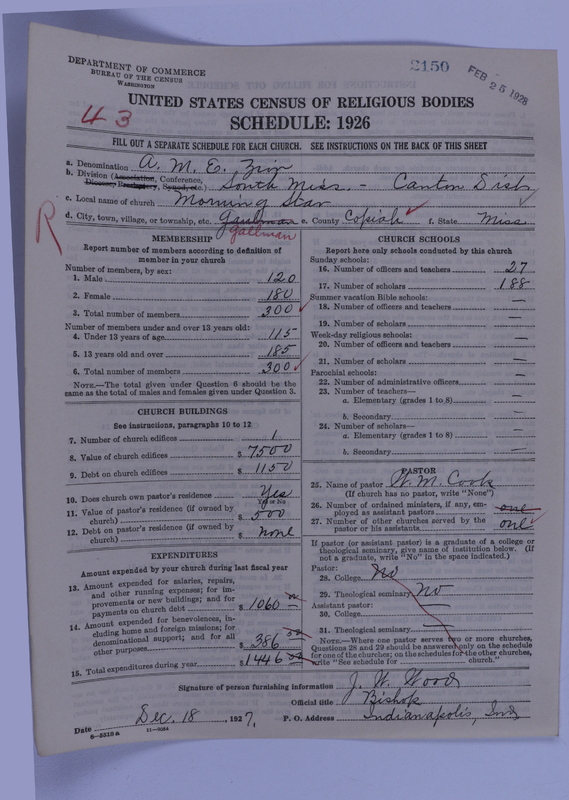 DEPARTMENT OF COMMERCE
BUREAU OF THE CENSUS
WASHINGTON
2150
FEB 25 1928
43
UNITED STATES CENSUS OF RELIGIOUS BODIES
SCHEDULE: 1926
FILL OUT A SEPARATE SCHEDULE FOR EACH CHURCH. SEE INSTRUCTIONS ON THE BACK OF THIS SHEET
a. Denomination A. M. E. Zion
b. Division (Association, Conference, Diocese, Presbytery, Synod, etc.) South Miss. - Canton Dist
c. Local name of church Morning Star
R
d. City, town, village, or township, etc. Gallman e. County Copiah f. State Miss.
MEMBERSHIP
Report number of members according to definition of
member in your church
Number of members, by sex:
1. Male 120
2. Female 180
3. Total number of members 300
Number of members under and over 13 years old:
4. Under 13 years of age 115
5. 13 years old and over 185
6. Total number of members 300
NOTE.—The total given under Question 6 should be
same as the total of males and females given under Question 3.
CHURCH BUILDINGS
See instructions, paragraphs 10 to 12
7. Number of church edifices 1
8. Value of church edifices $ 7500
9. Debt on church edifices $ 1150
10. Does church own pastor's residence Yes
Yes or No
11. Value of pastor's residence (if owned by
church) $ 500
12. Debt on pastor's residence (if owned by
church) $ none
EXPENDITURES
Amount expended by your church during last fiscal year
13. Amount expended for salaries, repairs,
and other running expenses; for im-
provements or new buildings; and for
payments on church debt $ 1060
14. Amount expended for benevolences, in-
cluding home and foreign missions; for
denominational support; and for all
other purposes $ 386
15. Total expenditures during year $ 1446
CHURCH SCHOOLS
Report here only schools conducted by this church
Sunday schools:
16. Number of officers and teachers 27
17. Number of scholars 188
Summer vacation Bible schools:
18. Number of officers and teachers —
19. Number of scholars —
Week-day religious schools:
20. Number of officers and teachers —
21. Number of scholars —
Parochial schools:
22. Number of administrative officers —
23. Number of teachers—
a. Elementary (grades 1 to 8) —
b. Secondary —
24. Number of scholars—
a. Elementary (grades 1 to 8) —
b. Secondary —
PASTOR
25. Name of pastor W. M. Cook
(If church has no pastor, write "None")
26. Number of ordained ministers, if any, em-
ployed as assistant pastors one
27. Number of other churches served by the
pastor or his assistants one
If pastor (or assistant pastor) is a graduate of a college or
theological seminary, give name of institution below. (If
not a graduate, write "No" in the space indicated.)
Pastor:
28. College No
29. Theological seminary No
Assistant pastor:
30. College —
31. Theological seminary —
NOTE.—Where one pastor serves two or more churches,
Questions 28 and 29 should be answered only on the schedule
for one of the churches; on the schedules for the other churches,
write "See schedule for church."
Signature of person furnishing information J. W. Wood
Official title Bishop
Date Dec. 18 1927, P. O. Address Indianapolis, Ind
8—5313 a